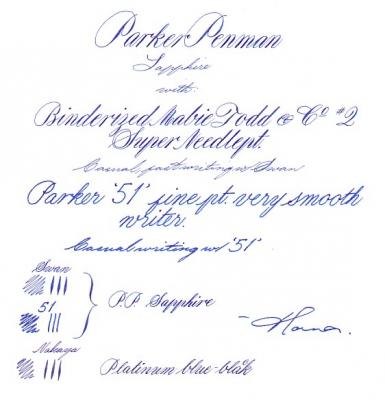 Parker Penman
Sapphire
with
Binderized Mabie Todd & Co #2
Super Needlept.
Casual, fast writing w/ Swan
Parker '51' fine pt. very smooth
writer.
Casual writing w/ '51'
Swan
51
P.P. Sapphire
Nakaya
Platinum blue-blak